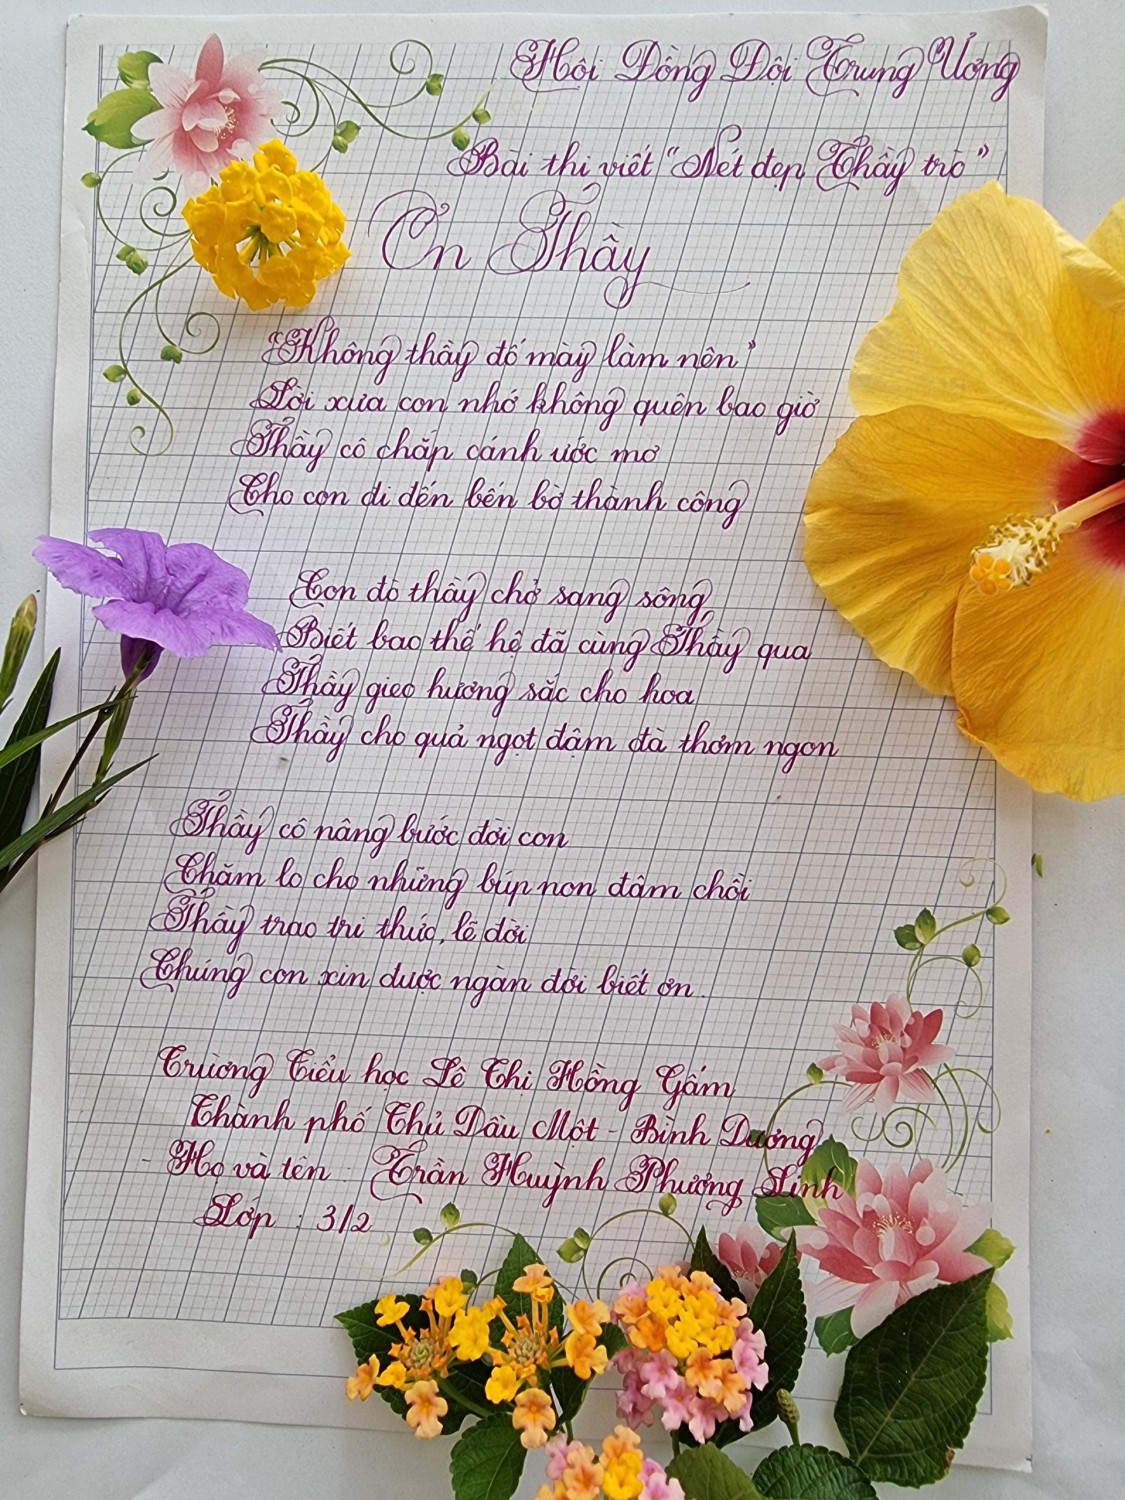 Hội Đồng Đội Trung Ương
Bài thi viết "Nét đẹp Thầy trò"
Ơn Thầy
"Không thầy đố mày làm nên"
Lời xưa con nhớ không quên bao giờ
Thầy cô chắp cánh ước mơ
Cho con đi đến bến bờ thành công
Con đò thầy chở sang sông
Biết bao thế hệ đã cùng Thầy qua
Thầy gieo hương sắc cho hoa
Thầy cho quả ngọt đậm đà thơm ngon
Thầy cô nâng bước đời con
Chăm lo cho những búp non đâm chồi
Thầy trao tri thức, lẽ đời
Chúng con xin được ngàn đời biết ơn.
Trường Tiểu học Lê Thị Hồng Gấm
Thành phố Thủ Dầu Một - Bình Dương
- Họ và tên : Trần Huỳnh Phương Linh
Lớp : 3/2